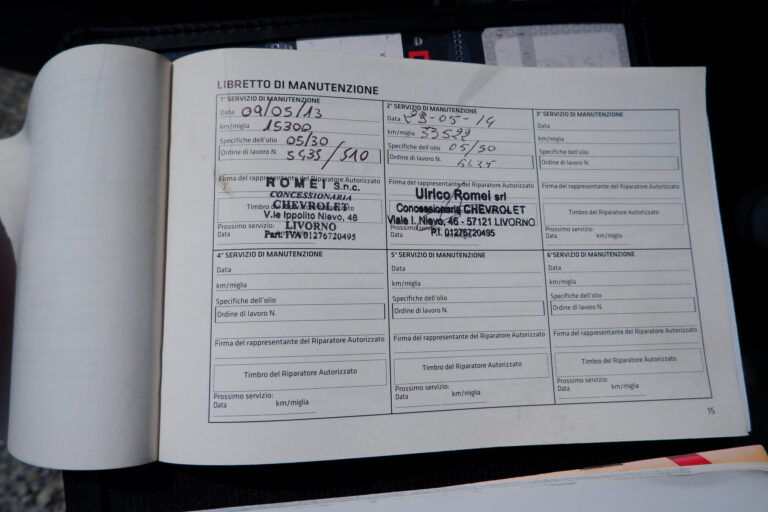 LIBRETTO DI MANUTENZIONE
1° SERVIZIO DI MANUTENZIONE
Data 09/05/13
km/miglia 15300
Specifiche dell'olio 05/30
Ordine di lavoro N. 5435/510
Firma del rappresentante del Riparatore Autorizzato
ROMEI S.n.c.
CONCESSIONARIA
CHEVROLET
V.le Ippolito Nievo, 46
LIVORNO
Part. IVA 01276720495
Timbro del Riparatore Autorizzato
Prossimo servizio:
Data
2° SERVIZIO DI MANUTENZIONE
Data 23-05-14
km/miglia 33523
Specifiche dell'olio 05/30
Ordine di lavoro N.
Firma del rappresentante del Riparatore Autorizzato
Ulrico Romei srl
Concessionaria CHEVROLET
Viale I. Nievo, 46 - 57121 LIVORNO
P.I. 01276720495
Data
3° SERVIZIO DI MANUTENZIONE
Data
km/miglia
Specifiche dell'olio
Ordine di lavoro N.
Firma del rappresentante del Riparatore Autorizzato
Timbro del Riparatore Autorizzato
Prossimo servizio:
Data km/miglia
4° SERVIZIO DI MANUTENZIONE
Data
km/miglia
Specifiche dell'olio
Ordine di lavoro N.
Firma del rappresentante del Riparatore Autorizzato
Timbro del Riparatore Autorizzato
Prossimo servizio:
Data km/miglia
5° SERVIZIO DI MANUTENZIONE
Data
km/miglia
Specifiche dell'olio
Ordine di lavoro N.
Firma del rappresentante del Riparatore Autorizzato
Timbro del Riparatore Autorizzato
Prossimo servizio:
Data km/miglia
6°SERVIZIO DI MANUTENZIONE
Data
km/miglia
Specifiche dell'olio
Ordine di lavoro N.
Firma del rappresentante del Riparatore Autorizzato
Timbro del Riparatore Autorizzato
Prossimo servizio:
Data km/miglia
15